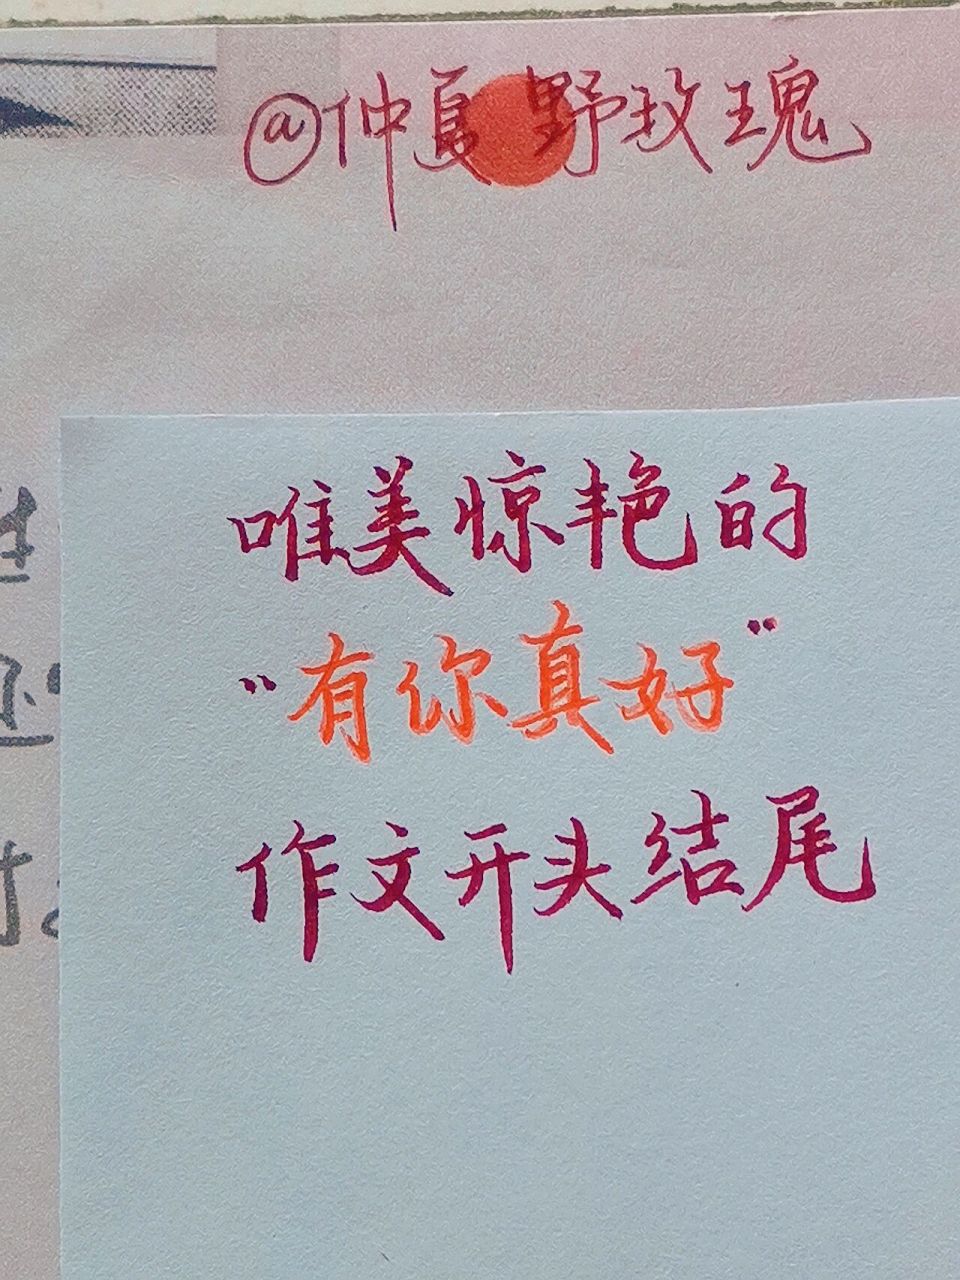 @仲夏野玫瑰
唯美惊艳的
“有你真好”
作文开头结尾